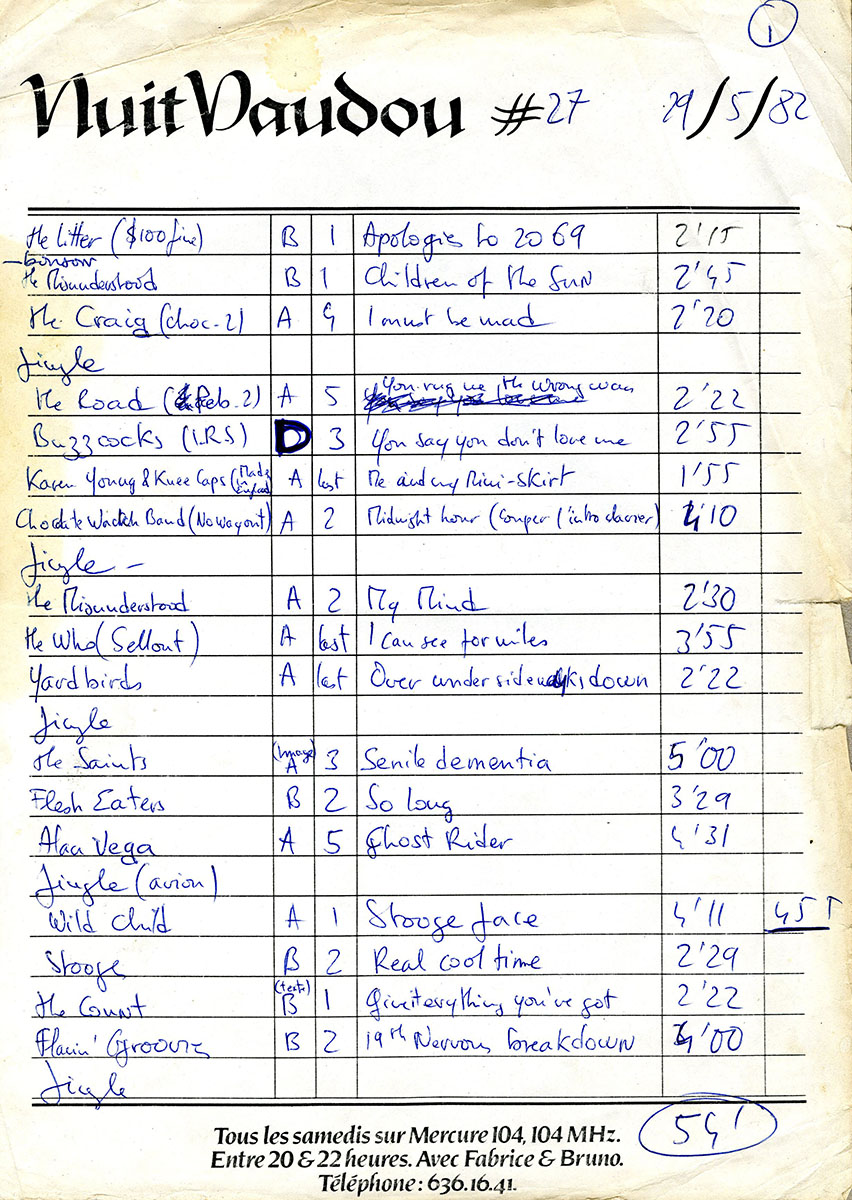 1
Nuit Vaudou #27 29/5/82
The Litter ($100 fine) B 1 Apologies to 2069 2'15
The Misunderstood B 1 Children of the Sun 2'45
The Craig (choc. 2) A 4 I must be mad 2'20
Jingle
The Road (Peb. 2) A 5 You rug me the wrong way 2'22
Buzzcocks (I.R.S) D 3 You say you don't love me 2'55
Karen Young & Knee Caps (Made in England) A last Me and my Mini-Skirt 1'55
Chocolate Watch Band (No way out) A 2 Midnight hour (couper l'intro 4'10
Jingle -
The Misunderstood A 2 My Mind 2'30
The Who (Sellout) A last I can see for miles 3'55
Yardbirds A last Over under sideways down 2'22
Jingle
The Saints (Image) A 3 Senile dementia 5'00
Flesh Eaters B 2 So long 3'29
Alan Vega A 5 Ghost Rider 4'31
Jingle (avion)
Wild Child A 1 Stooge face 4'11 45T
Stooge B 2 Real cool time 2'29
The Count B 1 Give it erything you've got 2'22
Flamin' Groovies B 2 19th Nervous breakdown 4'00
Jingle
54'
Tous les samedis sur Mercure 104, 104 MHz.
Entre 20 & 22 heures. Avec Fabrice & Bruno.
Téléphone: 636.16.41.